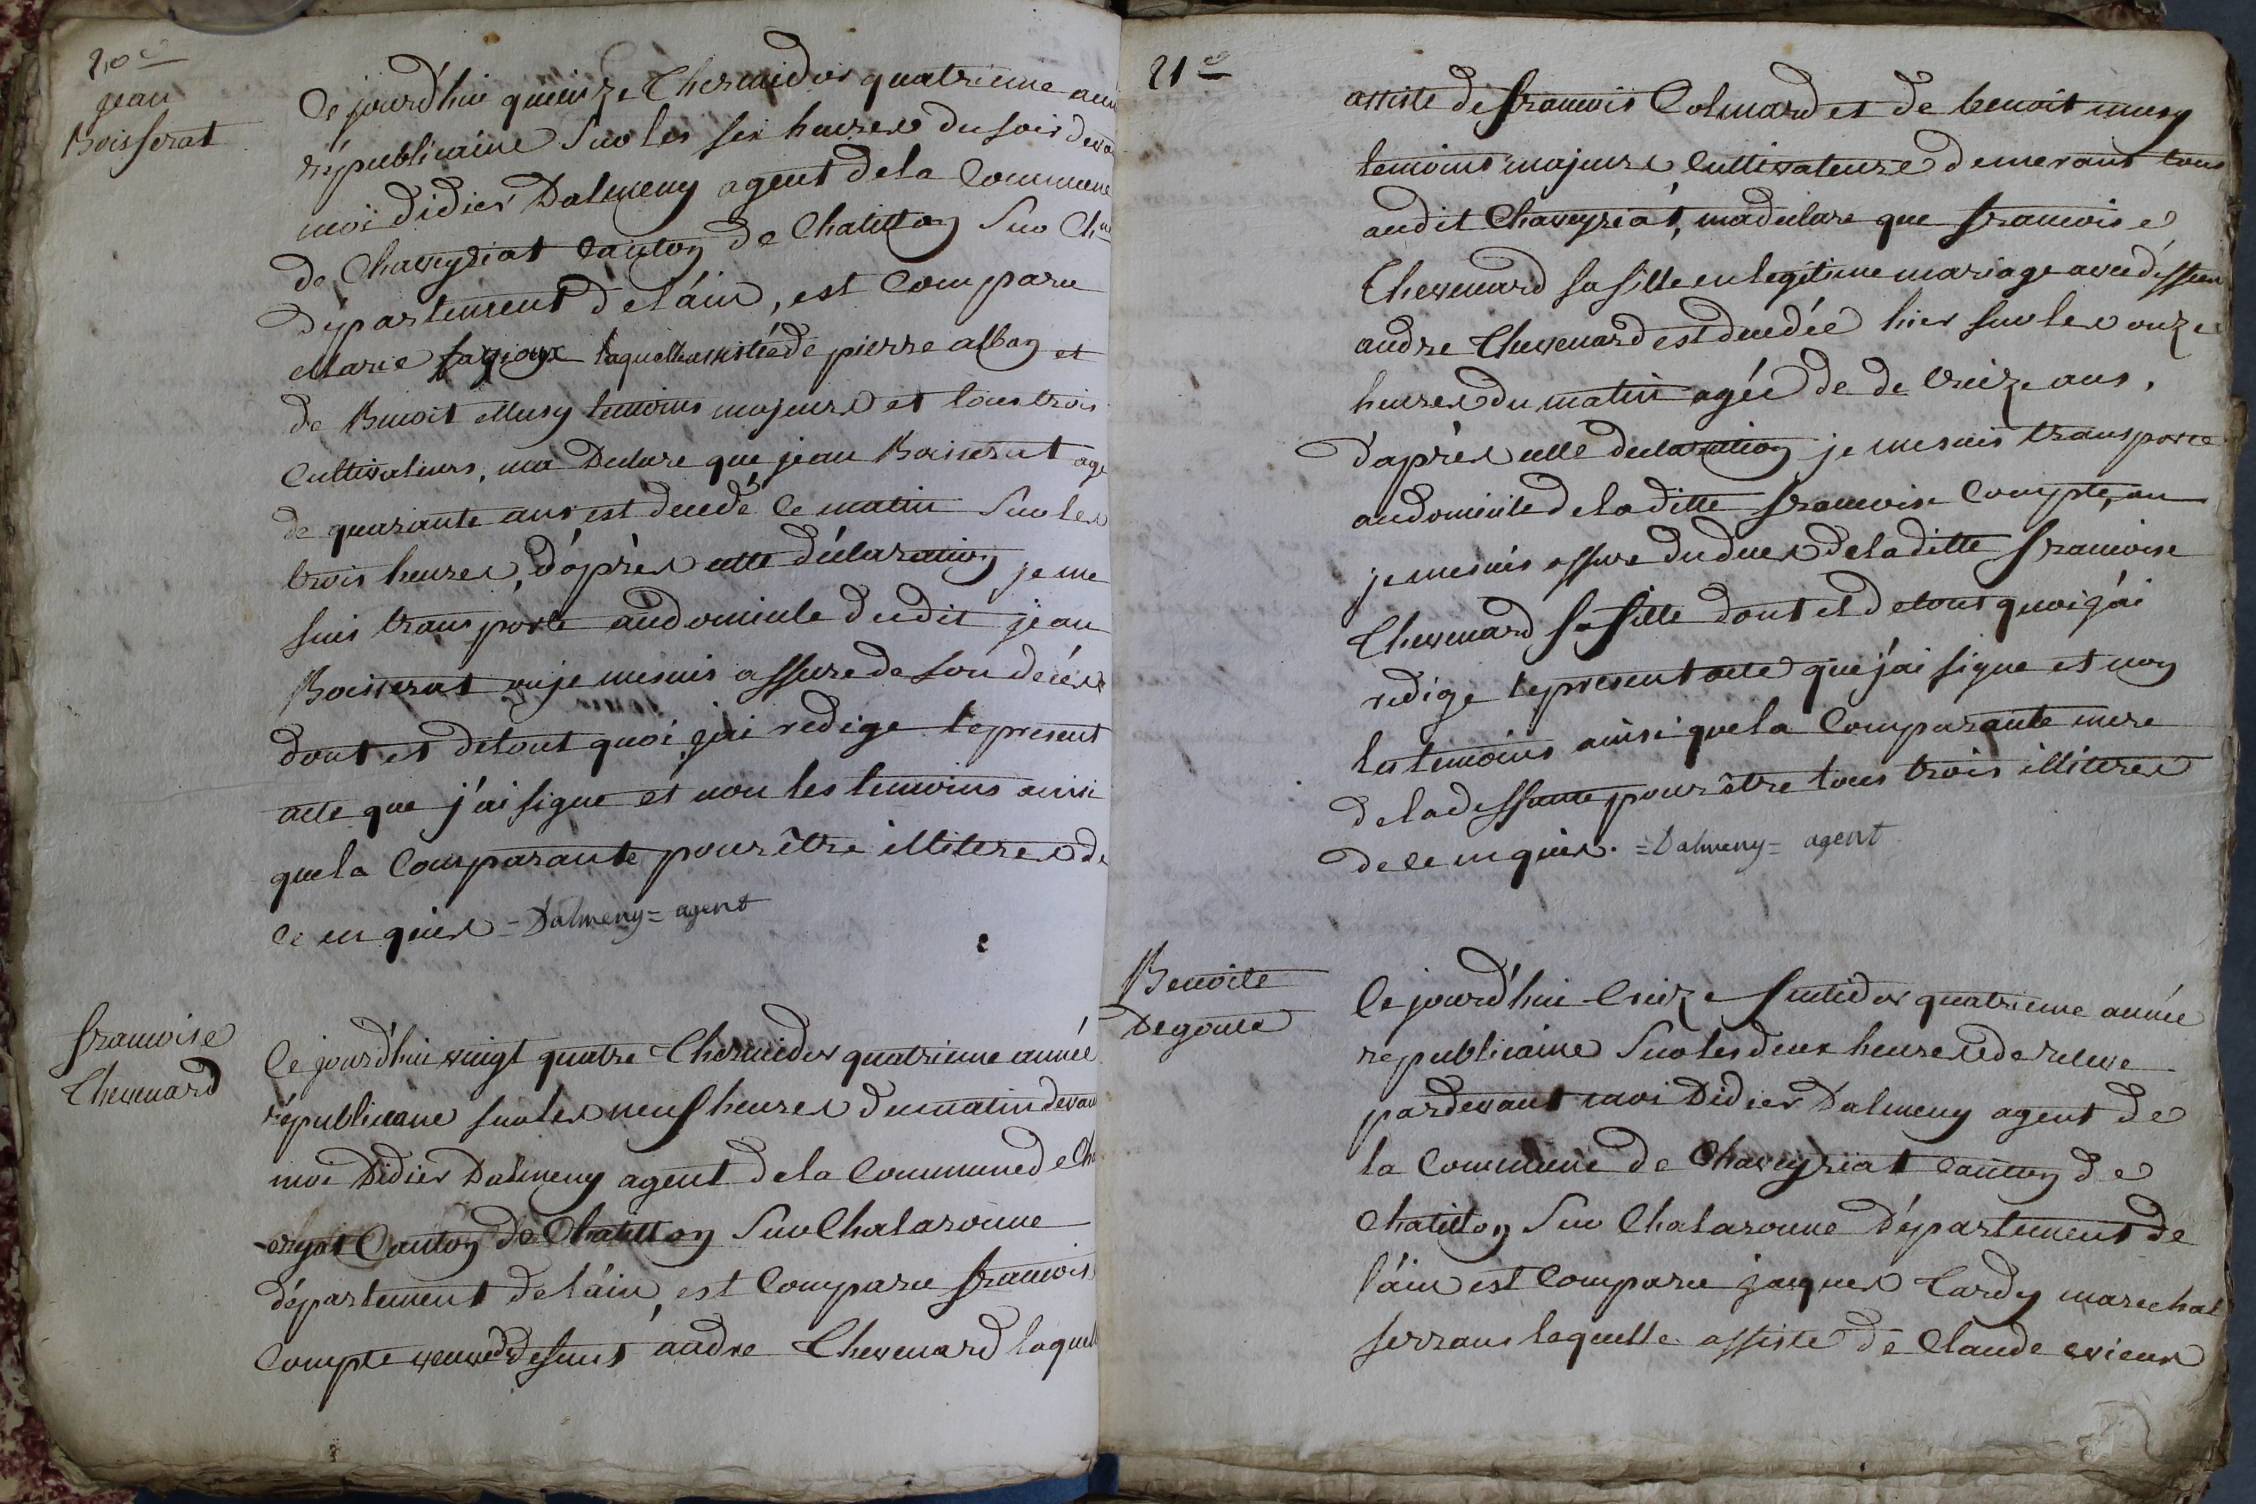 20e
jean
Boisserat
Ce jourd'hui quinze Thermidor quatrieme anné
républicaine Sur les six heures du soir deva
moi didier Dalmeny agent de la Commune
de Chaveyriat canton de Chatillon Sur Ch
département de l'áin, est Comparu
Marie laquelle assistée de pierre alban et
de Benoit Musy temoins majeurs et tous trois
Cultivateurs, ma Declare que jean Boisserat age
de quarante ans est decedé ce matin Sur les
trois heures, d'àprès cette déclaration je me
suis transporte au domicile du dit jean
Boisserat ou je me suis assure de son décès
dont et de tout quoi j'ai redige le present
acte que j'ai signe et non les temoins ainsi
que la Comparante pour être illiteres de
ce enquis =Dalmeny= agent
francoise
Chevenard
Ce jourd'hui vingt quatre Thermidor quatrieme année
républicane sur les neuf heures du matin devan
moi Didier Dalmeny agent de la Commune de Cha
eryat Canton de Chatillon Sur Chalaronne
département de l'áin, est Comparu francois
Compte veuve de defunt andre Chevenard laquell
21e
assiste de francois Colmard et de benoit musy
temoins majeurs Cultivateurs demerant tous
audit Chaveyriat, ma declare que francoise
Chevenard sa fille en legitime mariage avec deffunt
andre Chevenard est decedée hier sur les onze
heures du matin agée de de treize ans,
d'après cette declaration je me suis transporte
au domicile de la ditte francoise Compte, ou
je me suis assure du deces de la ditte francoise
Chevenard sa fille dont et de tout quoi j'ai
redige le present acte que j'ai signe et non
les temoins ainsi que la Comparante mere
de la deffunte pour être tous trois illiteres
de ce enquis. =Dalmeny= agent
Benoite
Degoute
Ce jourd'hui treize fructidor quatrieme année
republicaine Sur les deux heures de releve
pardevant moi Didier Dalmeny agent de
la Commune de Chaveyriat canton de
Chatillon Sur Chalaronne Département de
l'áin est Comparu jaques Tardy marechal
ferrans laquelle assiste de Claude evieux